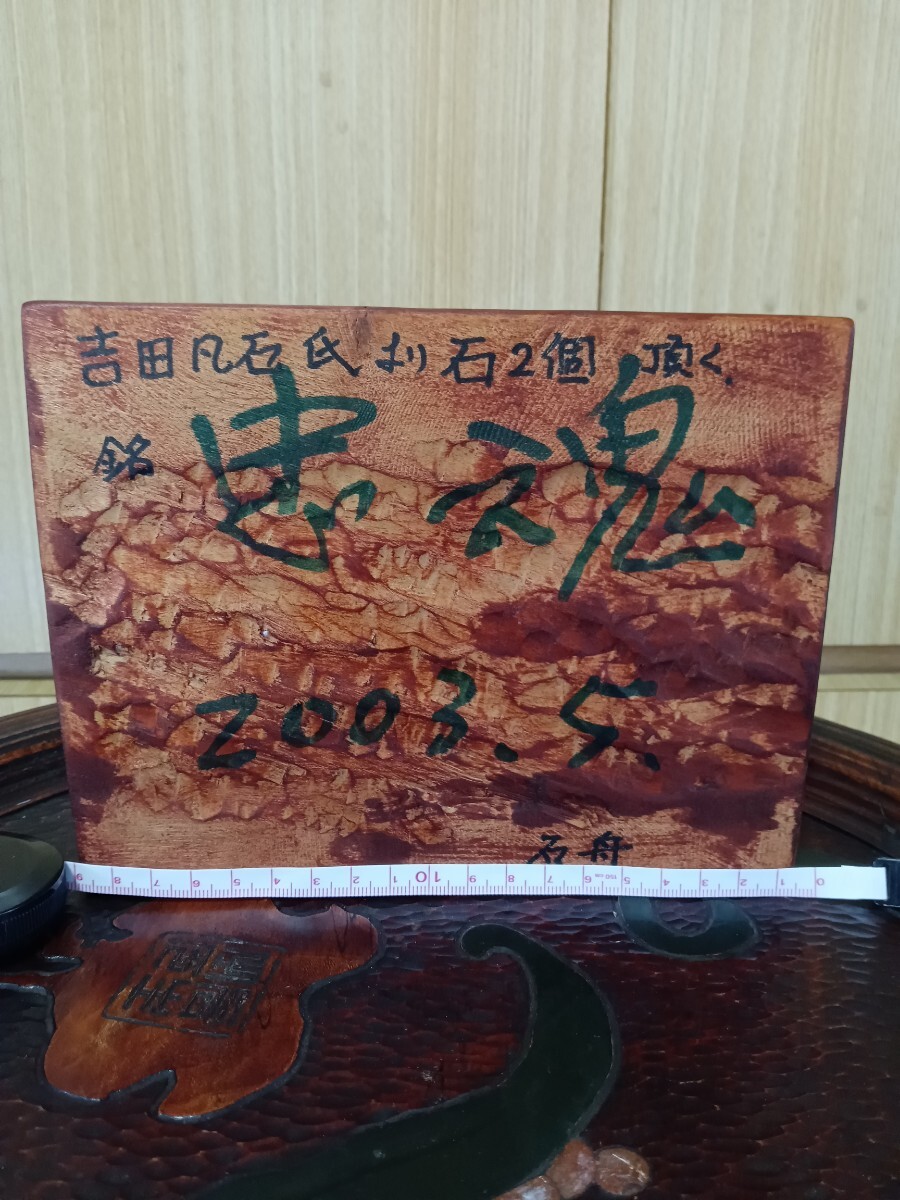 吉田凡石氏より石2個 頂く.
銘 忠魂
2003.5.
石舟
9 8 7 6 5 4 3 2 1 10 9 8 7 6 5 4 3 2 1 0
150cm